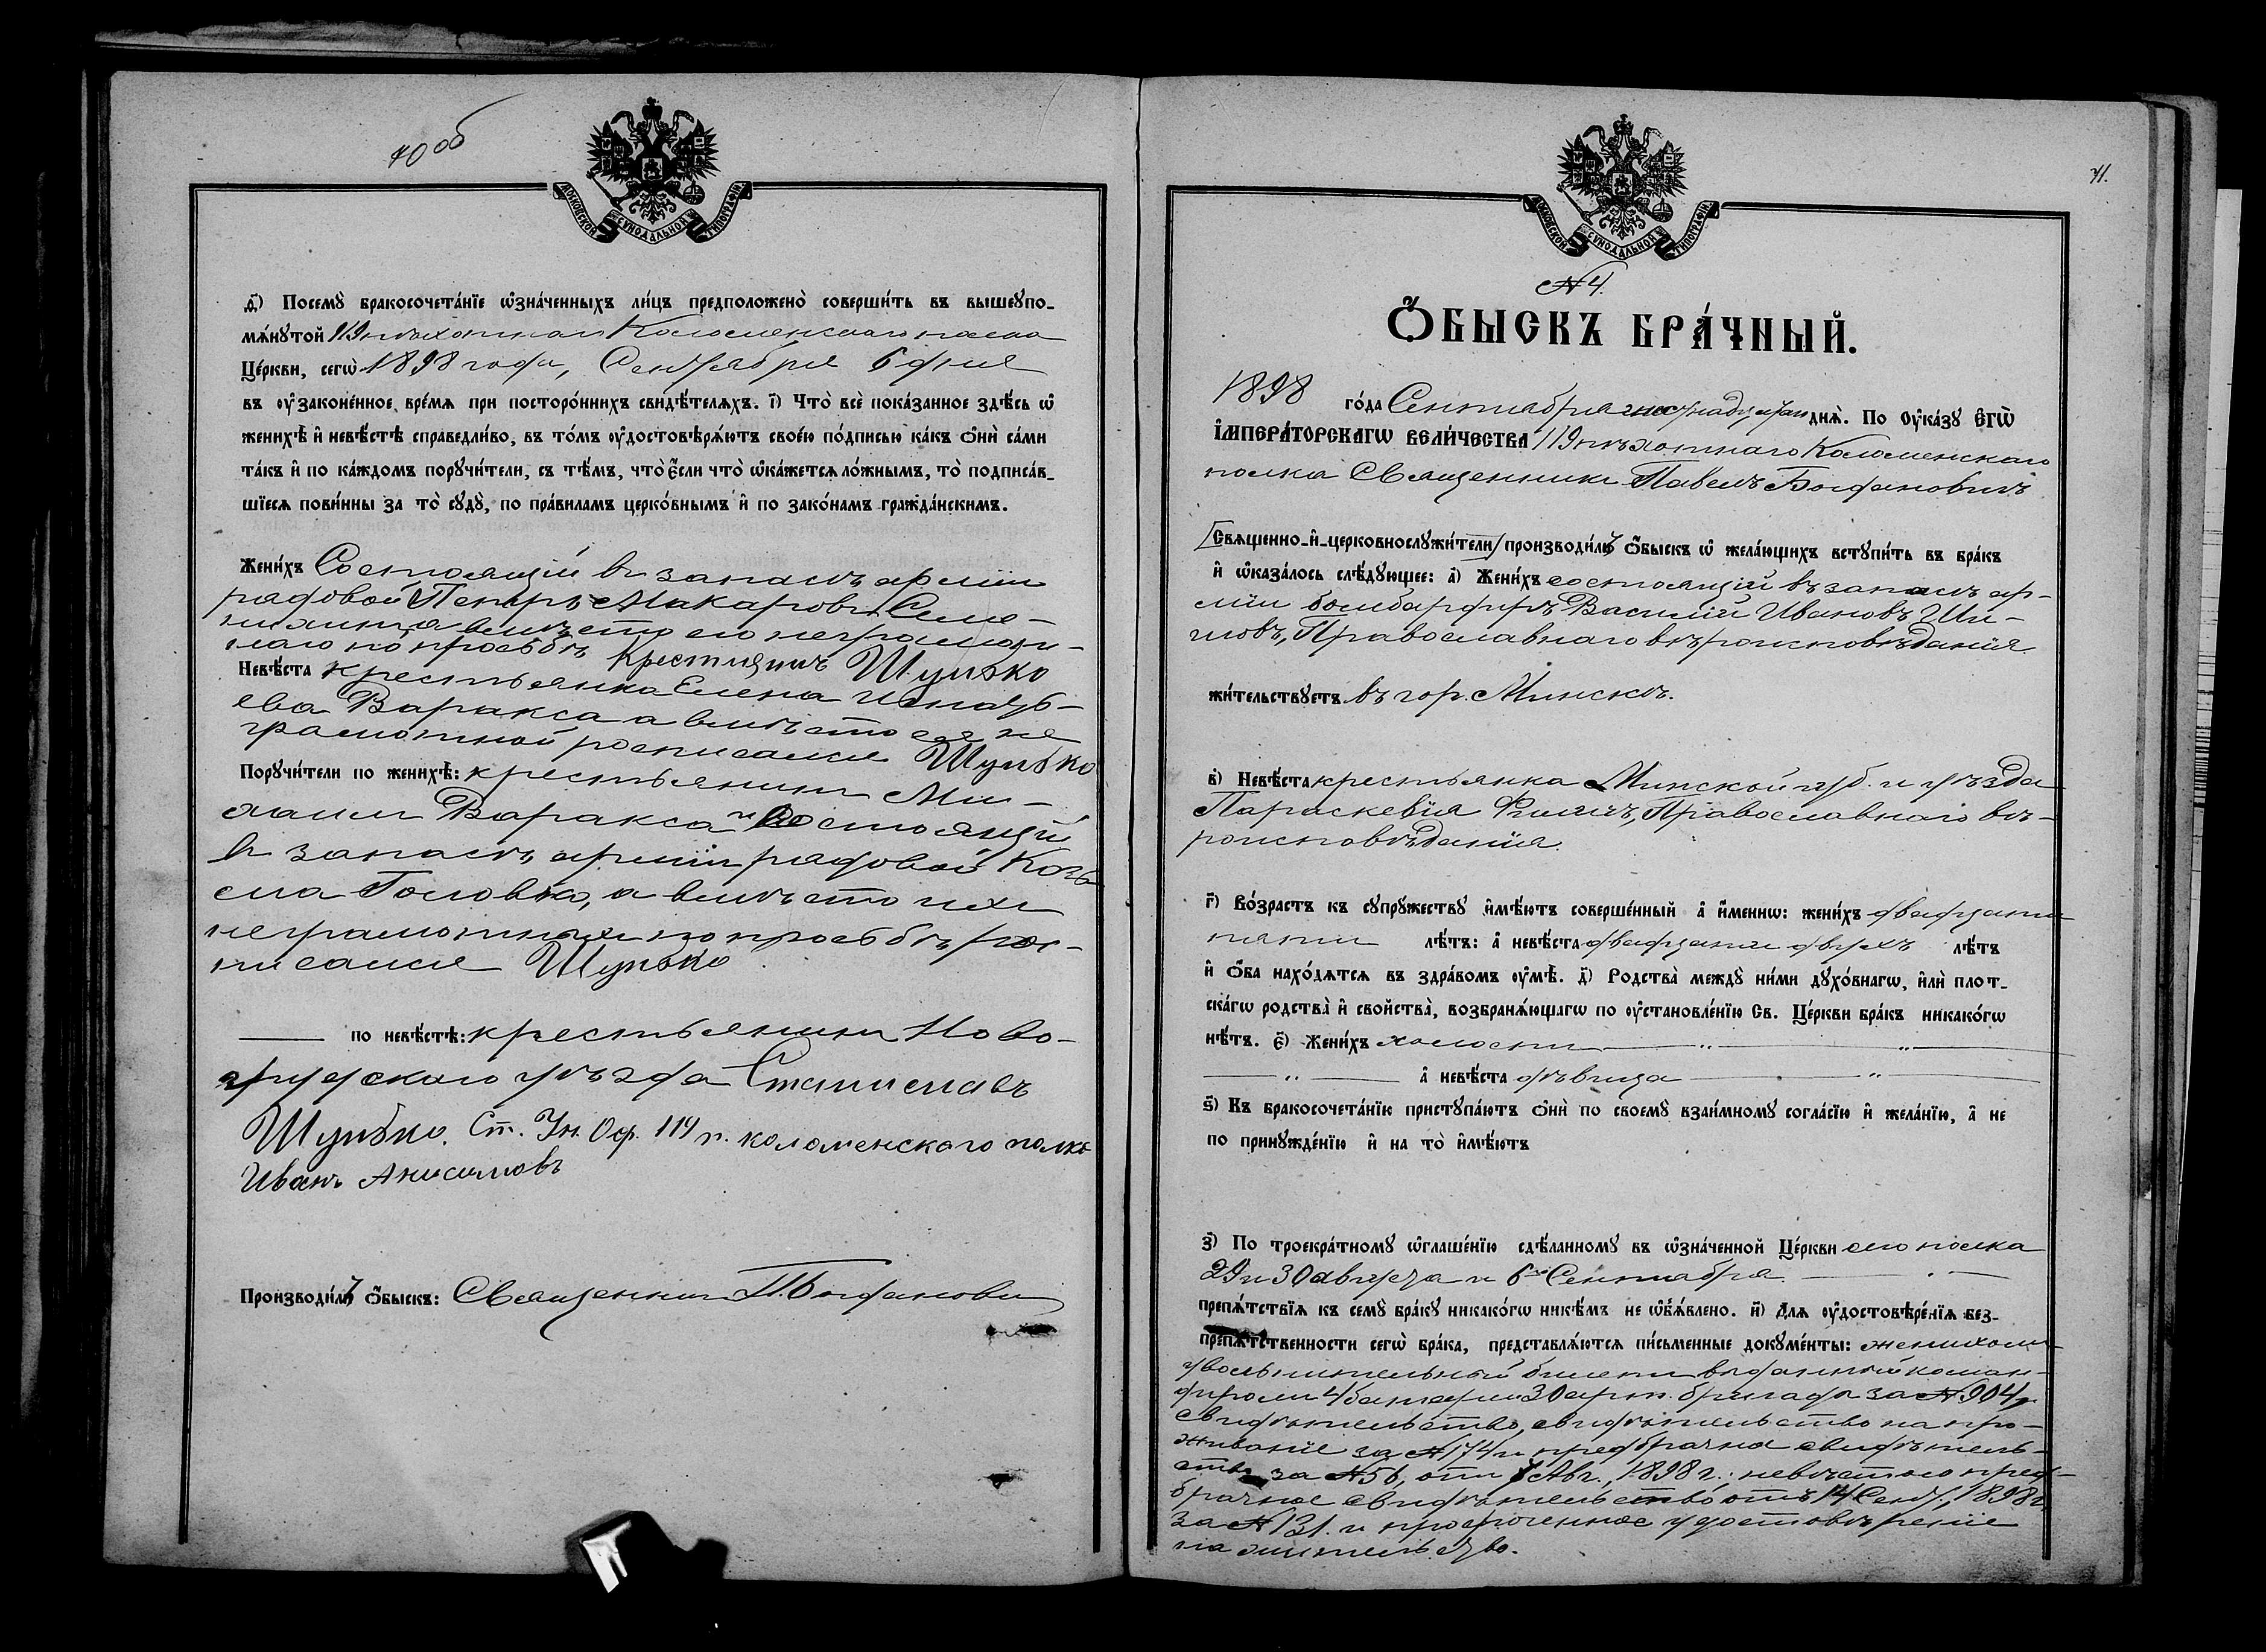 40 об
МОСКОВСКОЙ СѴНОДАЛЬНОЙ ТИПОГРАФІИ
д҃і) Посемꙋ̀ бракосочета́нїе ѡ҆зна́ченныхъ ли́цъ предположено̀ соверши́ть въ вышеꙋпо-
мѧ́нꙋтой 119 пѣхотнаго Коломенскаго полка
Це́ркви, сегѡ̀ 1898 года, Сентября 6 дня
въ ᲂу҆законе́нное вре́мѧ при посторо́ннихъ свидѣ́телѧхъ. і҃) Что̀ всѐ пока́занное здѣ́сь ѡ҆
женихѣ̀ и҆ невѣ́стѣ справедли́во, въ то́мъ ᲂу҆достовѣрѧ́ютъ свое́ю по́дписью ка́къ ѻ҆нѝ са́ми
та́къ и҆ по ка́ждомъ порꙋчи́тели, съ тѣ́мъ, что̀ є҆́сли что̀ ѡ҆ка́жетсѧ ло́жнымъ, то̀ подписа́в-
шїесѧ пови́нны за то̀ сꙋдꙋ̀, по пра́виламъ церко́внымъ и҆ по зако́намъ гражда́нскимъ.
Жени́хъ Состоящій въ запасѣ арміи
рядовой Петръ Макаровъ
а вмѣсто его неграмот-
наго по просьбѣ Крестянинъ Шупько
Невѣ́ста крестьянка Елена Игнать-
ева Варакса а вмѣсто ея не
грамотной росписался Шупько
Порꙋчи́тели по женихѣ̀: крестьянинъ Ми-
хаилъ Варакса и Состоящій
въ запасѣ арміи рядовой Козь-
ма Головко, а вмѣсто ихъ
неграмотныхъ по просьбѣ рос-
писался Шупько
— по невѣ́стѣ: крестьянинъ Ново-
грудскаго уѣзда Станиславъ
Шупько. Ст. Ун. Оф. 119 п. коломенского полка
Иванъ Анисимовъ
Производи́лъ ѻ҆́быскъ: Священникъ П. Богданович
71.
МОСКОВСКОЙ СѴНОДАЛЬНОЙ ТИПОГРАФІИ
№ 4.
Ѻ҆́БЫСКЪ БРА́ЧНЫЙ.
1898 го́да Сентября днѧ̀. По ᲂу҆ка́зꙋ Є҆ГѠ̀
І҆МПЕРА́ТОРСКАГѠ ВЕЛИ́ЧЕСТВА 119 пѣхотнаго Коломенскаго
полка Священникъ Павелъ Богдановичъ
[Свѧще́нно-и҆-церковнослꙋжи́тели] производи́лъ ѻ҆́быскъ ѡ҆ жела́ющихъ встꙋпи́ть въ бра́къ
и҆ ѡ҆каза́лось слѣ́дꙋющее: а҃) Жени́хъ состоящій въ запасѣ ар-
міи бомбардиръ Василій Ивановъ Ши-
ловъ, Православнаго вѣроисповѣданія.
жи́тельствꙋетъ въ гор. Минскѣ.
в҃) Невѣ́ста крестьянка Минской губ. и уѣзда
Параскевія Православнаго вѣ-
роисповѣданія.
г҃) Во́зрастъ къ сꙋпрꙋ́жествꙋ и҆мѣ́ютъ соверше́нный а҆ и҆́меннѡ: жени́хъ двадцати
пяти лѣ́тъ: а҆ невѣ́ста двадцати двухъ лѣ́тъ
и҆ ѻ҆́ба нахо́дѧтсѧ въ здра́вомъ ᲂу҆мѣ̀. д҃) Родства̀ междꙋ̀ ни́ми дꙋхо́внагѡ, и҆лѝ плот-
ска́гѡ родства̀ и҆ сво́йства̀, возбранѧ́ющагѡ по ᲂу҆становле́нїю Св. Це́ркви бра́къ никако́гѡ
нѣ́тъ. є҃) Жени́хъ холостъ — „ — „ —
— „ — а҆ невѣ́ста дѣвица — „ —
ѕ҃) Къ бракосочета́нїю пристꙋпа́ютъ ѻ҆нѝ по своемꙋ̀ взаи́мномꙋ согла́сїю и҆ жела́нїю, а҆ не
по принꙋжде́нїю и҆ на то̀ и҆мѣ́ютъ
з҃) По троекра́тномꙋ ѡ҆глаше́нїю сдѣ́ланномꙋ въ ѡ҆зна́ченной Це́ркви сего полка
29 и 30 августа и 6го Сентября.
препѧ́тствїѧ къ семꙋ̀ бра́кꙋ никако́гѡ никѣ́мъ не ѡ҆б̾ѧ́влено. и҃) Длѧ ᲂу҆достовѣре́нїѧ без-
препѧ́тственности сегѡ̀ бра́ка, представлѧ́ютсѧ пи́сьменные докꙋме́нты: женихомъ
увольнительный билетъ выданный коман-
диромъ 4 батареи 30 арт. бригады за № 904,
свидѣтельство, свидѣтельство на про-
живаніе за № 174 и предбрачное свидѣтель-
ство за № 56, отъ Авг., 1898 г.; невѣстою пред-
брачное свидѣтельство отъ 14 Сент. 1898 г.
за № 131. и просроченное удостовѣреніе
на жительство.